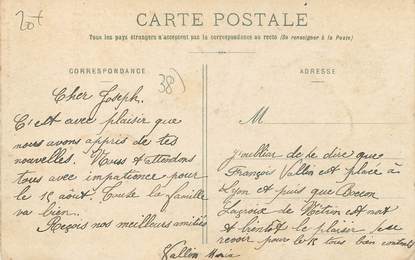 20f
CARTE POSTALE
Tous les pays étrangers n'acceptent pas la correspondance au recto (Se renseigner à la Poste)
CORRESPONDANCE
38)
ADRESSE
Cher Joseph.
C'est avec plaisir que
nous avons appris de tes
nouvelles. Nous t'attendons
tous avec impatience pour
le 15 août. Toute la famille
va bien.
Reçois nos meilleurs amitiés
Vallin Maria
M
J'oubliai de te dire que
François Vallin est placé à
Lyon et puis que
Lagroix de est mort
a bientôt le plaisir de se
revoir pour le 15 tous bien contents